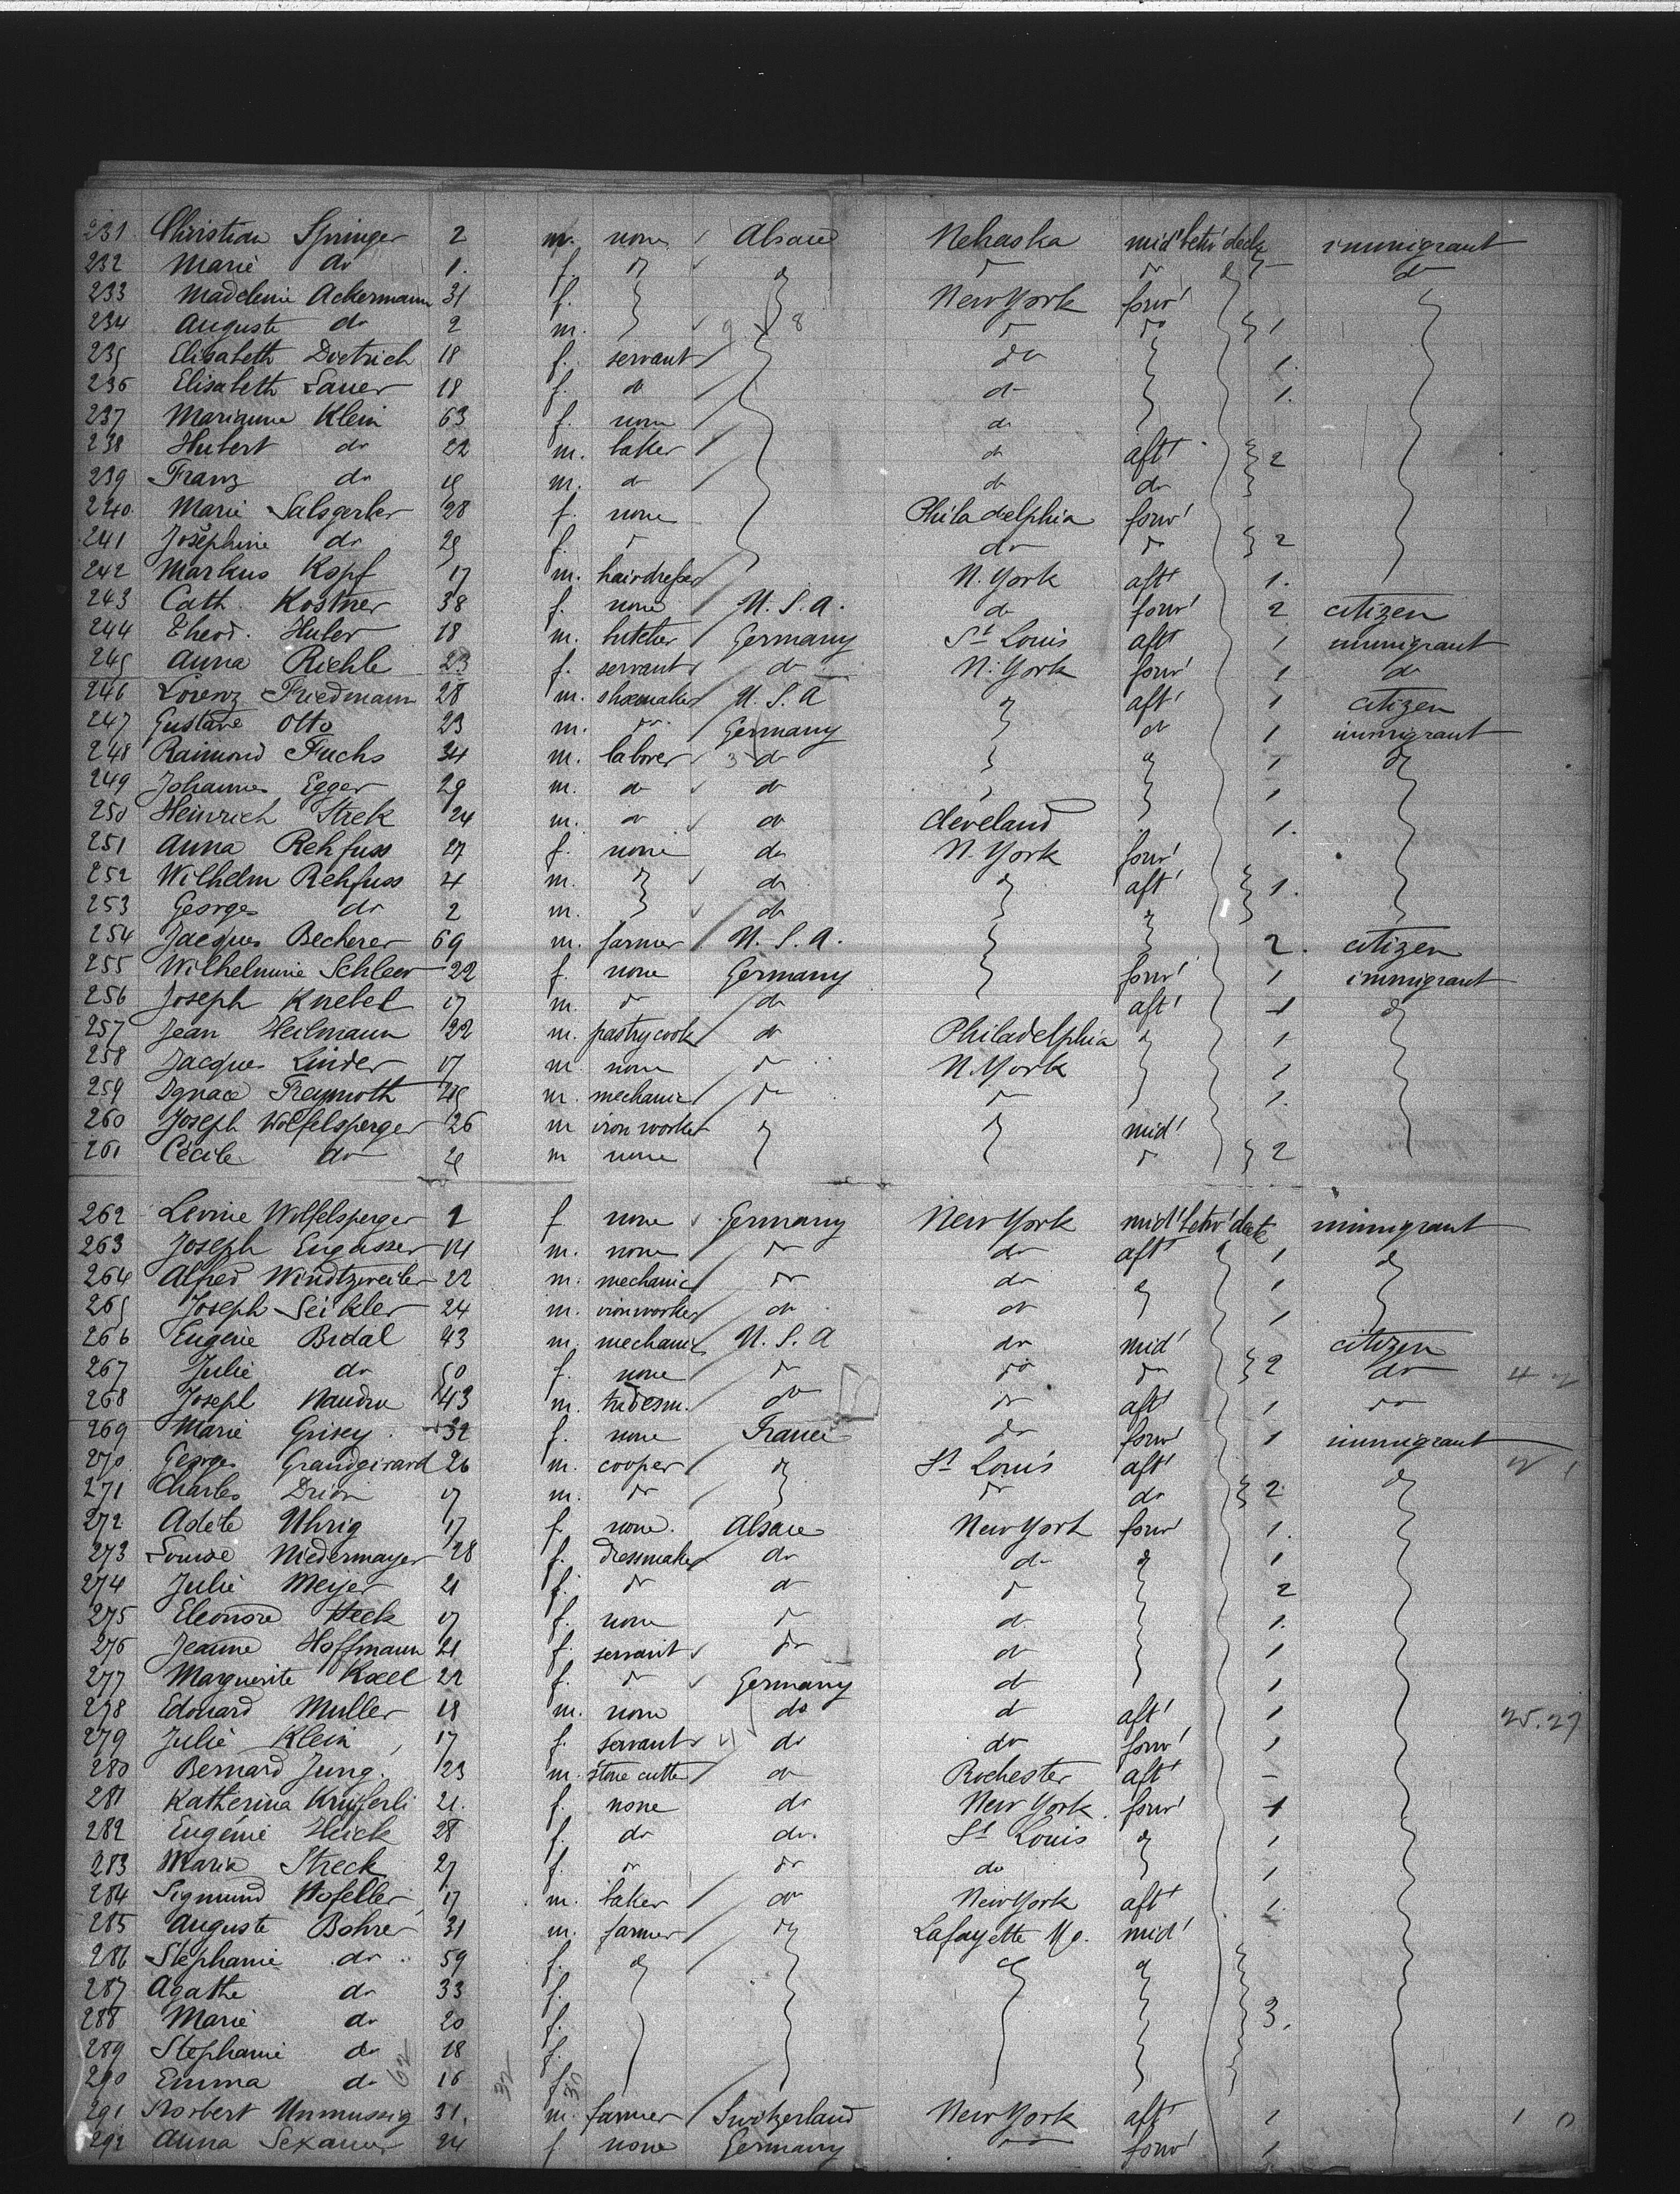 231 Christian Springer 2 m. none Alsace Nebraska mid' betw' deck immigrant
232 Marie do 1. f. do do do do do
233 Madeleine Ackermann 31 f. New York forw'
234 Auguste do 2 m. 9 8 do do 1
235 Elisabeth Dietrich 18 f. servant do 1.
236 Elisabeth Sauer 18 f. do do 1.
237 Marianne Klein 63 f. none do
238 Hubert do 22 m. baker do aft' 2
239 Franz do 18 m. do do do
240 Marie Salsgerber 28 f. none Philadelphia forw'
241 Josephine do 25 f. do do do 2
242 Markus Kopf 17 m. hairdresser N. York aft' 1.
243 Cath. Kostner 38 f. none U.S.A. do forw' 2 citizen
244 Theod. Huber 18 m. butcher Germany St Louis aft' 1 immigrant
245 Anna Riehle 23 f. servant do N. York forw' 1 do
246 Lorenz Friedmann 28 m. shoemaker U.S.A aft' 1 citizen
247 Gustave Otto 23 m. do Germany do 1 immigrant
248 Raimond Fuchs 34 m. laborer 3 do 1 do
249 Johannes Egger 29 m. do do 1
250 Heinrich Streck 24 m. do do Cleveland 1.
251 Anna Rehfuss 27 f. none do N. York forw'
252 Wilhelm Rehfuss 4 m. do do do aft' 1.
253 Georges do 2 m. do do
254 Jacques Becherer 69 m. farmer U.S.A. 2. citizen
255 Wilhelmine Schleer 22 f. none Germany forw' 1 immigrant
256 Joseph Knebel 17 m. do do aft' 1 do
257 Jean Heilmann 22 m. pastrycook do Philadelphia do 1
258 Jacques Linder 17 m none do N. York 1
259 Ignace Freymoth 25 m. mechanic do do 1.
260 Joseph Wolfelsperger 26 m iron worker do do mid'
261 Cécile do m none do 2
262 Wolfelsperger f none Germany New York mid' betw' deck immigrant
263 Joseph Engasser 14 m. none do do aft' 1 do
264 Alfred Windtzweiler 22 m. mechanic do do do 1
265 Joseph Seikler 24 m. ironworker do do 1
266 Eugène Bidal 43 m. mechanic U.S.A do mid' citizen
267 Julie do 50 f. none do do do 2 do 4
268 Joseph Naudin 43 m. tradesm. do do aft' 1 do
269 Marie Grisey 32 f. none France do forw' 1 immigrant
270 Georges Grandgirard 26 m. cooper do St Louis aft'
271 Charles Drion 17 m. do do do 2 do
272 Adèle Uhrig 17 f. none. Alsace New York forw' 1.
273 Louise Niedermayer 28 f. dressmaker do do do 1
274 Julie Meyer 21 f. do do do 2
275 Eleonore Heck 17 f. none do do 1.
276 Jeanne Hoffmann 21 f. servant do do 1
277 Marguerite Koell 22 f. do Germany do 1
278 Edouard Muller 18 m. none do do aft' 1 25.27
279 Julie Klein 17 f. servant do do forw' 1
280 Bernard Jung. 23 m. stone cutter do Rochester aft' –
281 Katherina 21. f. none do New York forw' 1
282 Eugénie Heick 28 f. do do. St Louis do 1
283 Maria Streck 27 f. do do do 1
284 Sigmund Hofeller 17 m. baker do New York aft' 1.
285 Auguste Bohrer 31 m. farmer do Lafayette mid'
286 Stephanie do 59 f. do do do
287 Agathe do 33 f.
288 Marie do 20 f. 3.
289 Stephanie do 18 f.
290 Emma do 62 16 32 f. 30
291 Norbert Unmussig 31. m. farmer Switzerland New York aft' 1 1 0
292 Anna Sexauer 24 f none Germany do forw' 1